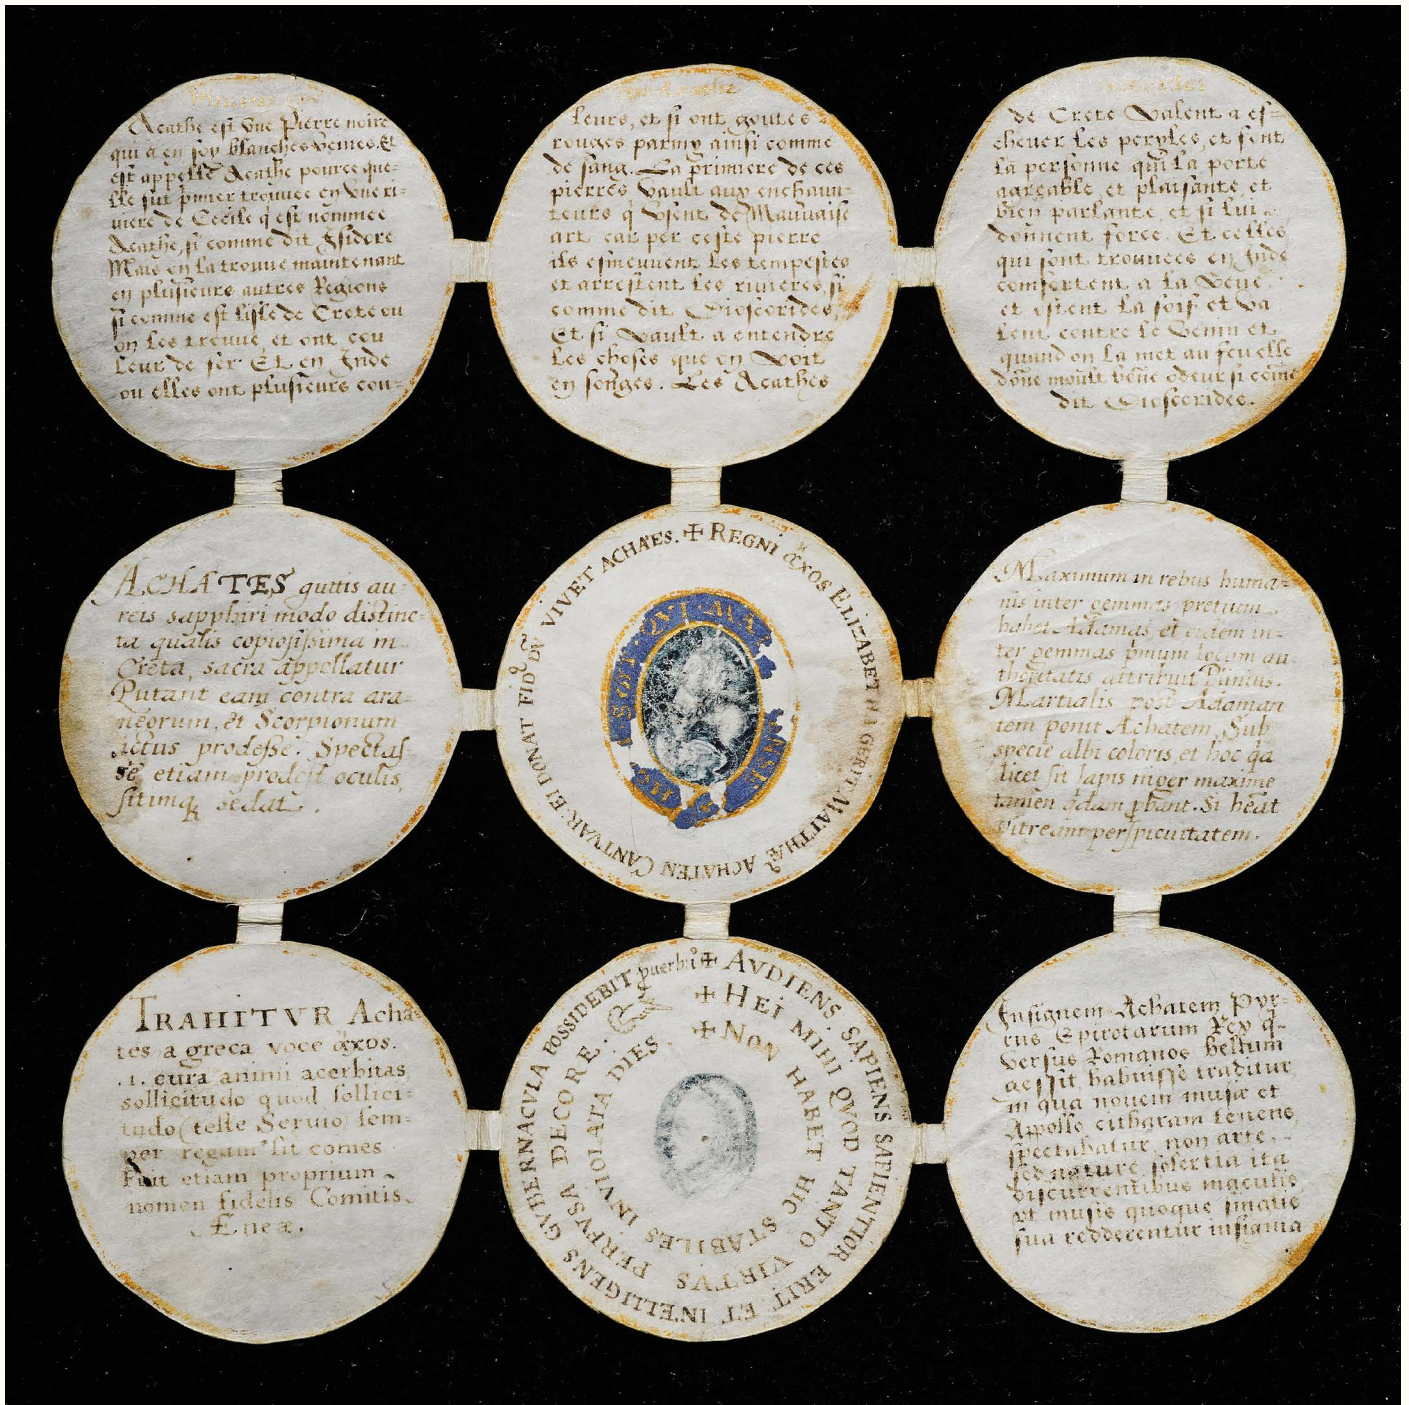 Acathe est vne Pierre noire
qui a en soy blanches veines. Et
est appelle Acathe pource que-
lle fut pmier trouuee en vne ri-
uiere de Cecile q̄ est nommee
Acathe, si comme dit Isidore
Mais on la trouue maintenant
en plusieurs autres Regions
si comme est l'isle de Crete ou
on les treuue, et ont cou
leur de fer. Et en Inde
ou elles ont plusieurs cou-
leurs, et si ont goutes
rouges parmy ainsi comme
de sang. La primiere de ces
pierres vault aux enchaun-
teurs q̄ vsent de Mauuaise
art car per ceste pierre
ils esmeuuent les tempestes
et arrestent les riuieres, si
comme dit Dioscorides,
Et si vault a entendre
les choses que on voit
en songes. Les Acathes
de Crete valent a es-
cheuer les peryles, et font
la personne qui la porte
agreable, et plaisante, et
bien parlante, et si lui
donnent force. Et celles
qui sont trouuees en Inde
comfortent a la veue.
et ostent la soif et va
lent contre le venin et
quand on la met au feu elle
dōne moult bōne odeur si cōme
dit Dioscorides.
ACHATES guttis au-
reis sapphiri modo distinc-
ta qualis copiosissima in
Creta, sacra appellatur
Putant eam contra ara-
neorum, et Scorpionum
ictus prodesse. Spectas-
se etiam prodest oculis,
sitimq sedat.
✠ REGNI ἄχος ELIZABETHA GERIT. MATTHÆ' ACHATEN CANTVAR: EI DONAT FID' DŪ VIVET ACHAES.
HONI SOIT QVI MAL Y PENSE
Maximum in rebus huma-
nis inter gemmas pretium
habet Adamas, et eidem in-
ter gemmas pmum locum au-
thoritatis attribuit Plinius.
Martialis post Adaman
tem ponit Achatem, Sub
specie albi coloris, et hoc qa
licet sit lapis niger maxime
tamen qdam pbant. Si heat
vitream perspicuitatem.
TRAHITVR Acha-
tes a greca voce ἄχος.
.1. cura animi acerbitas
sollicitudo quod sollici-
tudo (teste Seruio) sem-
per regum sit comes
Fuit etiam proprium
nomen fidelis Comitis
Æneæ.
✠ AVDIENS. SAPIENS SAPIENTIOR ERIT. ET INTELLIGENS GVBERNACVLA POSSIDEBIT puerbi
✠ HEI MIHI QVOD TANTO VIRTVS PERFVSA DECORE.
✠ NON HABET HIC STABILES INVIOLATA DIES
Insignem Achatem Pyr-
rus Epirotarum Rex q̄-
versus Romanos bellum
gessit, habuisse traditur,
in qua nouem musæ et
Appollo citharam tenens,
spectabatur, non arte,
sed nature solertia ita
discurrentibus maculis
vt musis quoque singulis
sua redderentur insignia